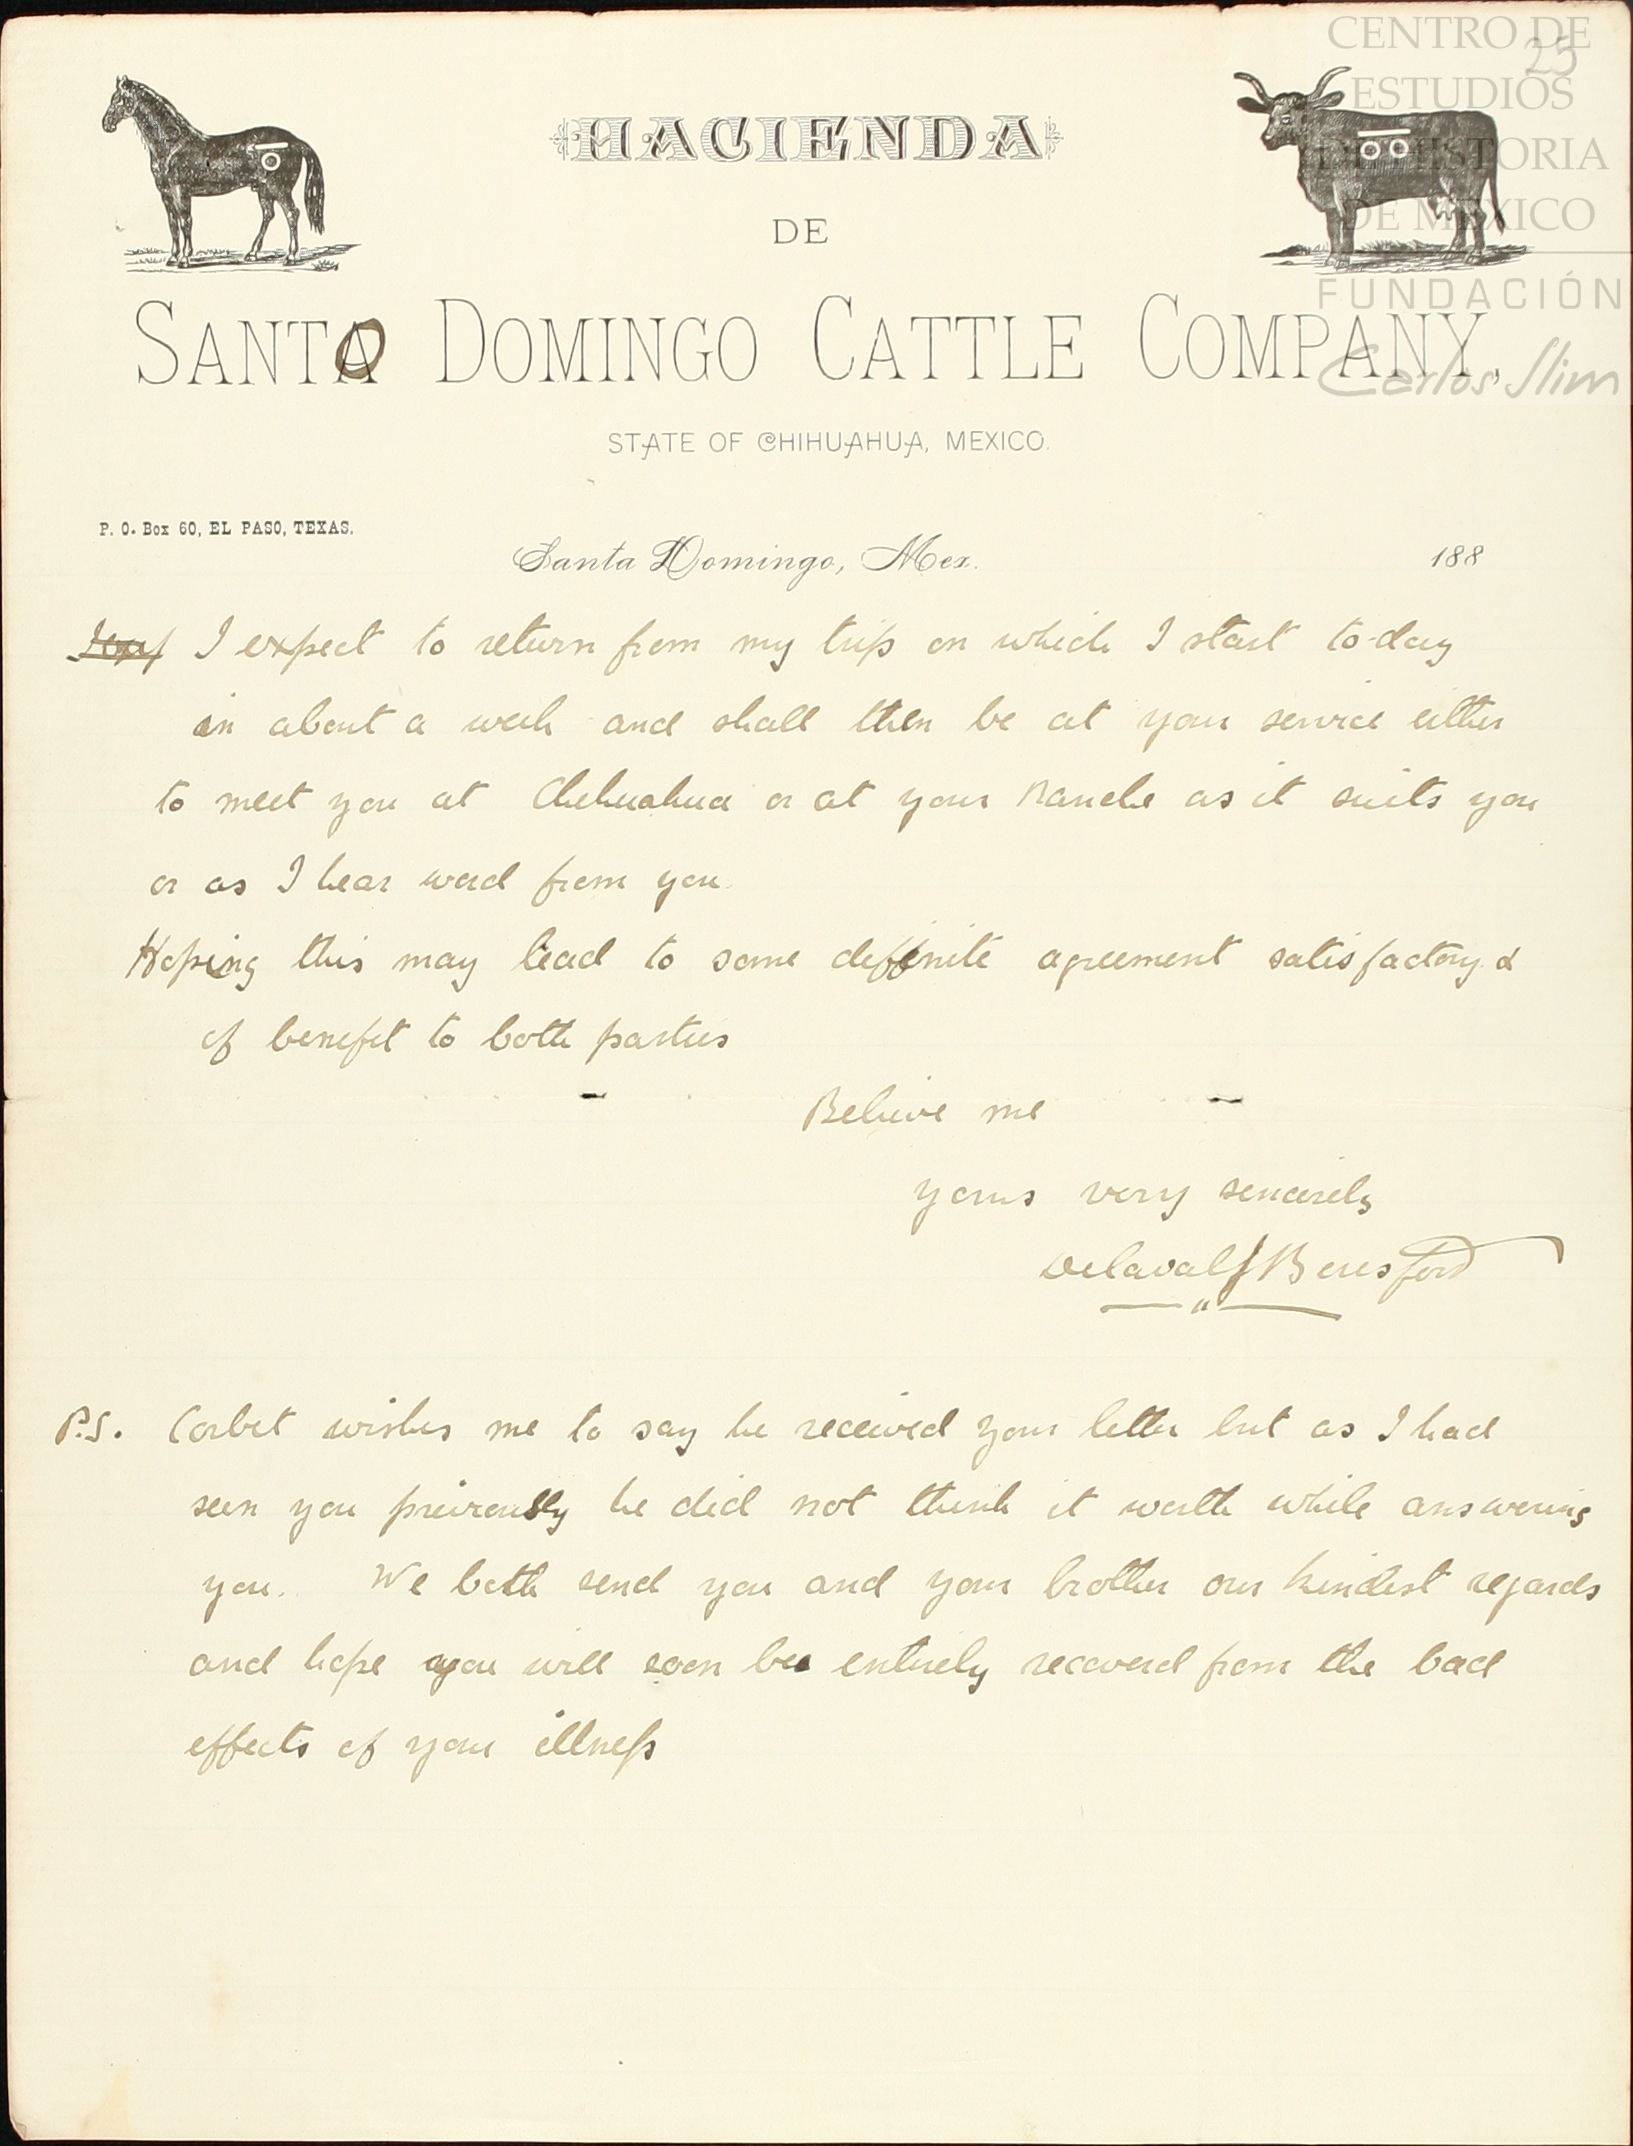 25
CENTRO DE
ESTUDIOS
DE HISTORIA
DE MÉXICO
FUNDACIÓN
Carlos Slim
HACIENDA
DE
SANTO DOMINGO CATTLE COMPANY,
STATE OF CHIHUAHUA, MEXICO.
P. O. Box 60, EL PASO, TEXAS.
Santa Domingo, Mex. 188
I expect to return from my trip on which I start to-day
in about a week and shall then be at your service either
to meet you at Chihuahua or at your Ranche as it suits you
or as I hear word from you.
Hoping this may lead to some deffinite agreement satisfactory &
of benefit to both parties
Believe me
yours very sincerely
Delaval J Beresford
P.S. Corbet wishes me to say he received your letter but as I had
seen you previously he did not think it worth while answering
you. We both send you and your brother our kindest regards
and hope you will soon be entirely recovered from the bad
effects of your illness